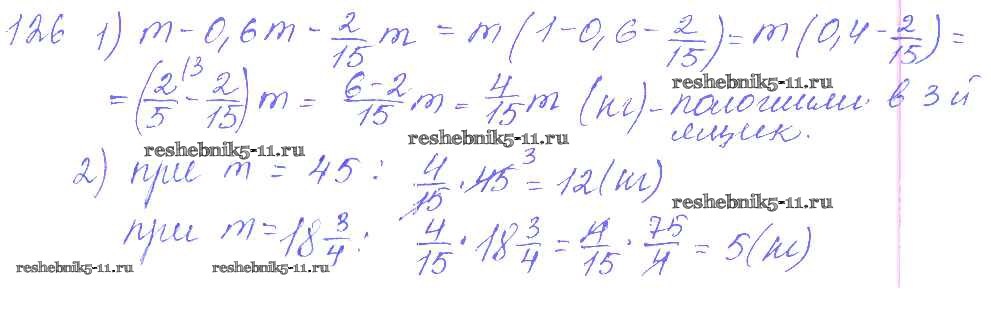 126 1) m - 0,6m - 2/15 m = m (1 - 0,6 - 2/15) = m (0,4 - 2/15) =
reshebnik5-11.ru
= (2/5 \3 - 2/15) m = 6-2/15 m = 4/15 m (кг) - положили в 3й
ящик.
reshebnik5-11.ru reshebnik5-11.ru
2) при m = 45 : 4/15 · 45 3 = 12 (кг)
reshebnik5-11.ru
при m = 18 3/4 : 4/15 · 18 3/4 = 4/15 · 75/4 = 5 (кг)
reshebnik5-11.ru reshebnik5-11.ru